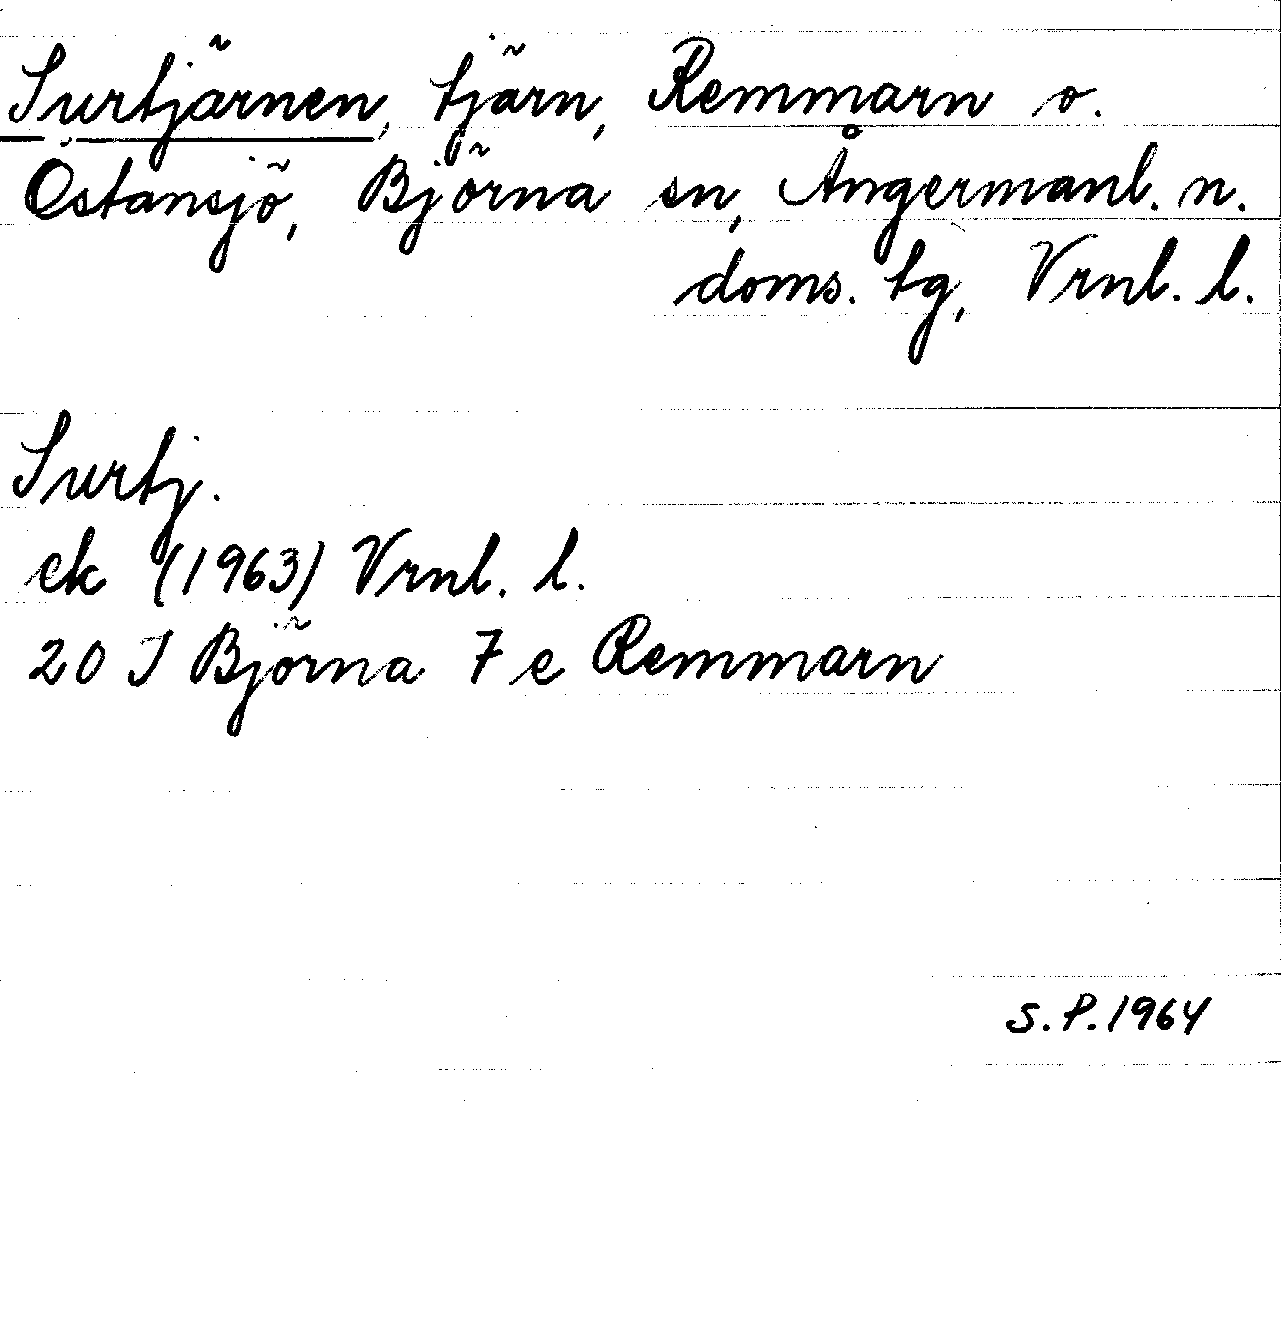 Surtjärnen, tjärn, Remmarn o.
Östansjö, Björna sn, Ångermanl. n.
doms. tg, Vrnl. l.
Surtj.
ek (1963) Vrnl. l.
20 I Björna 7 e Remmarn
S.P. 1964